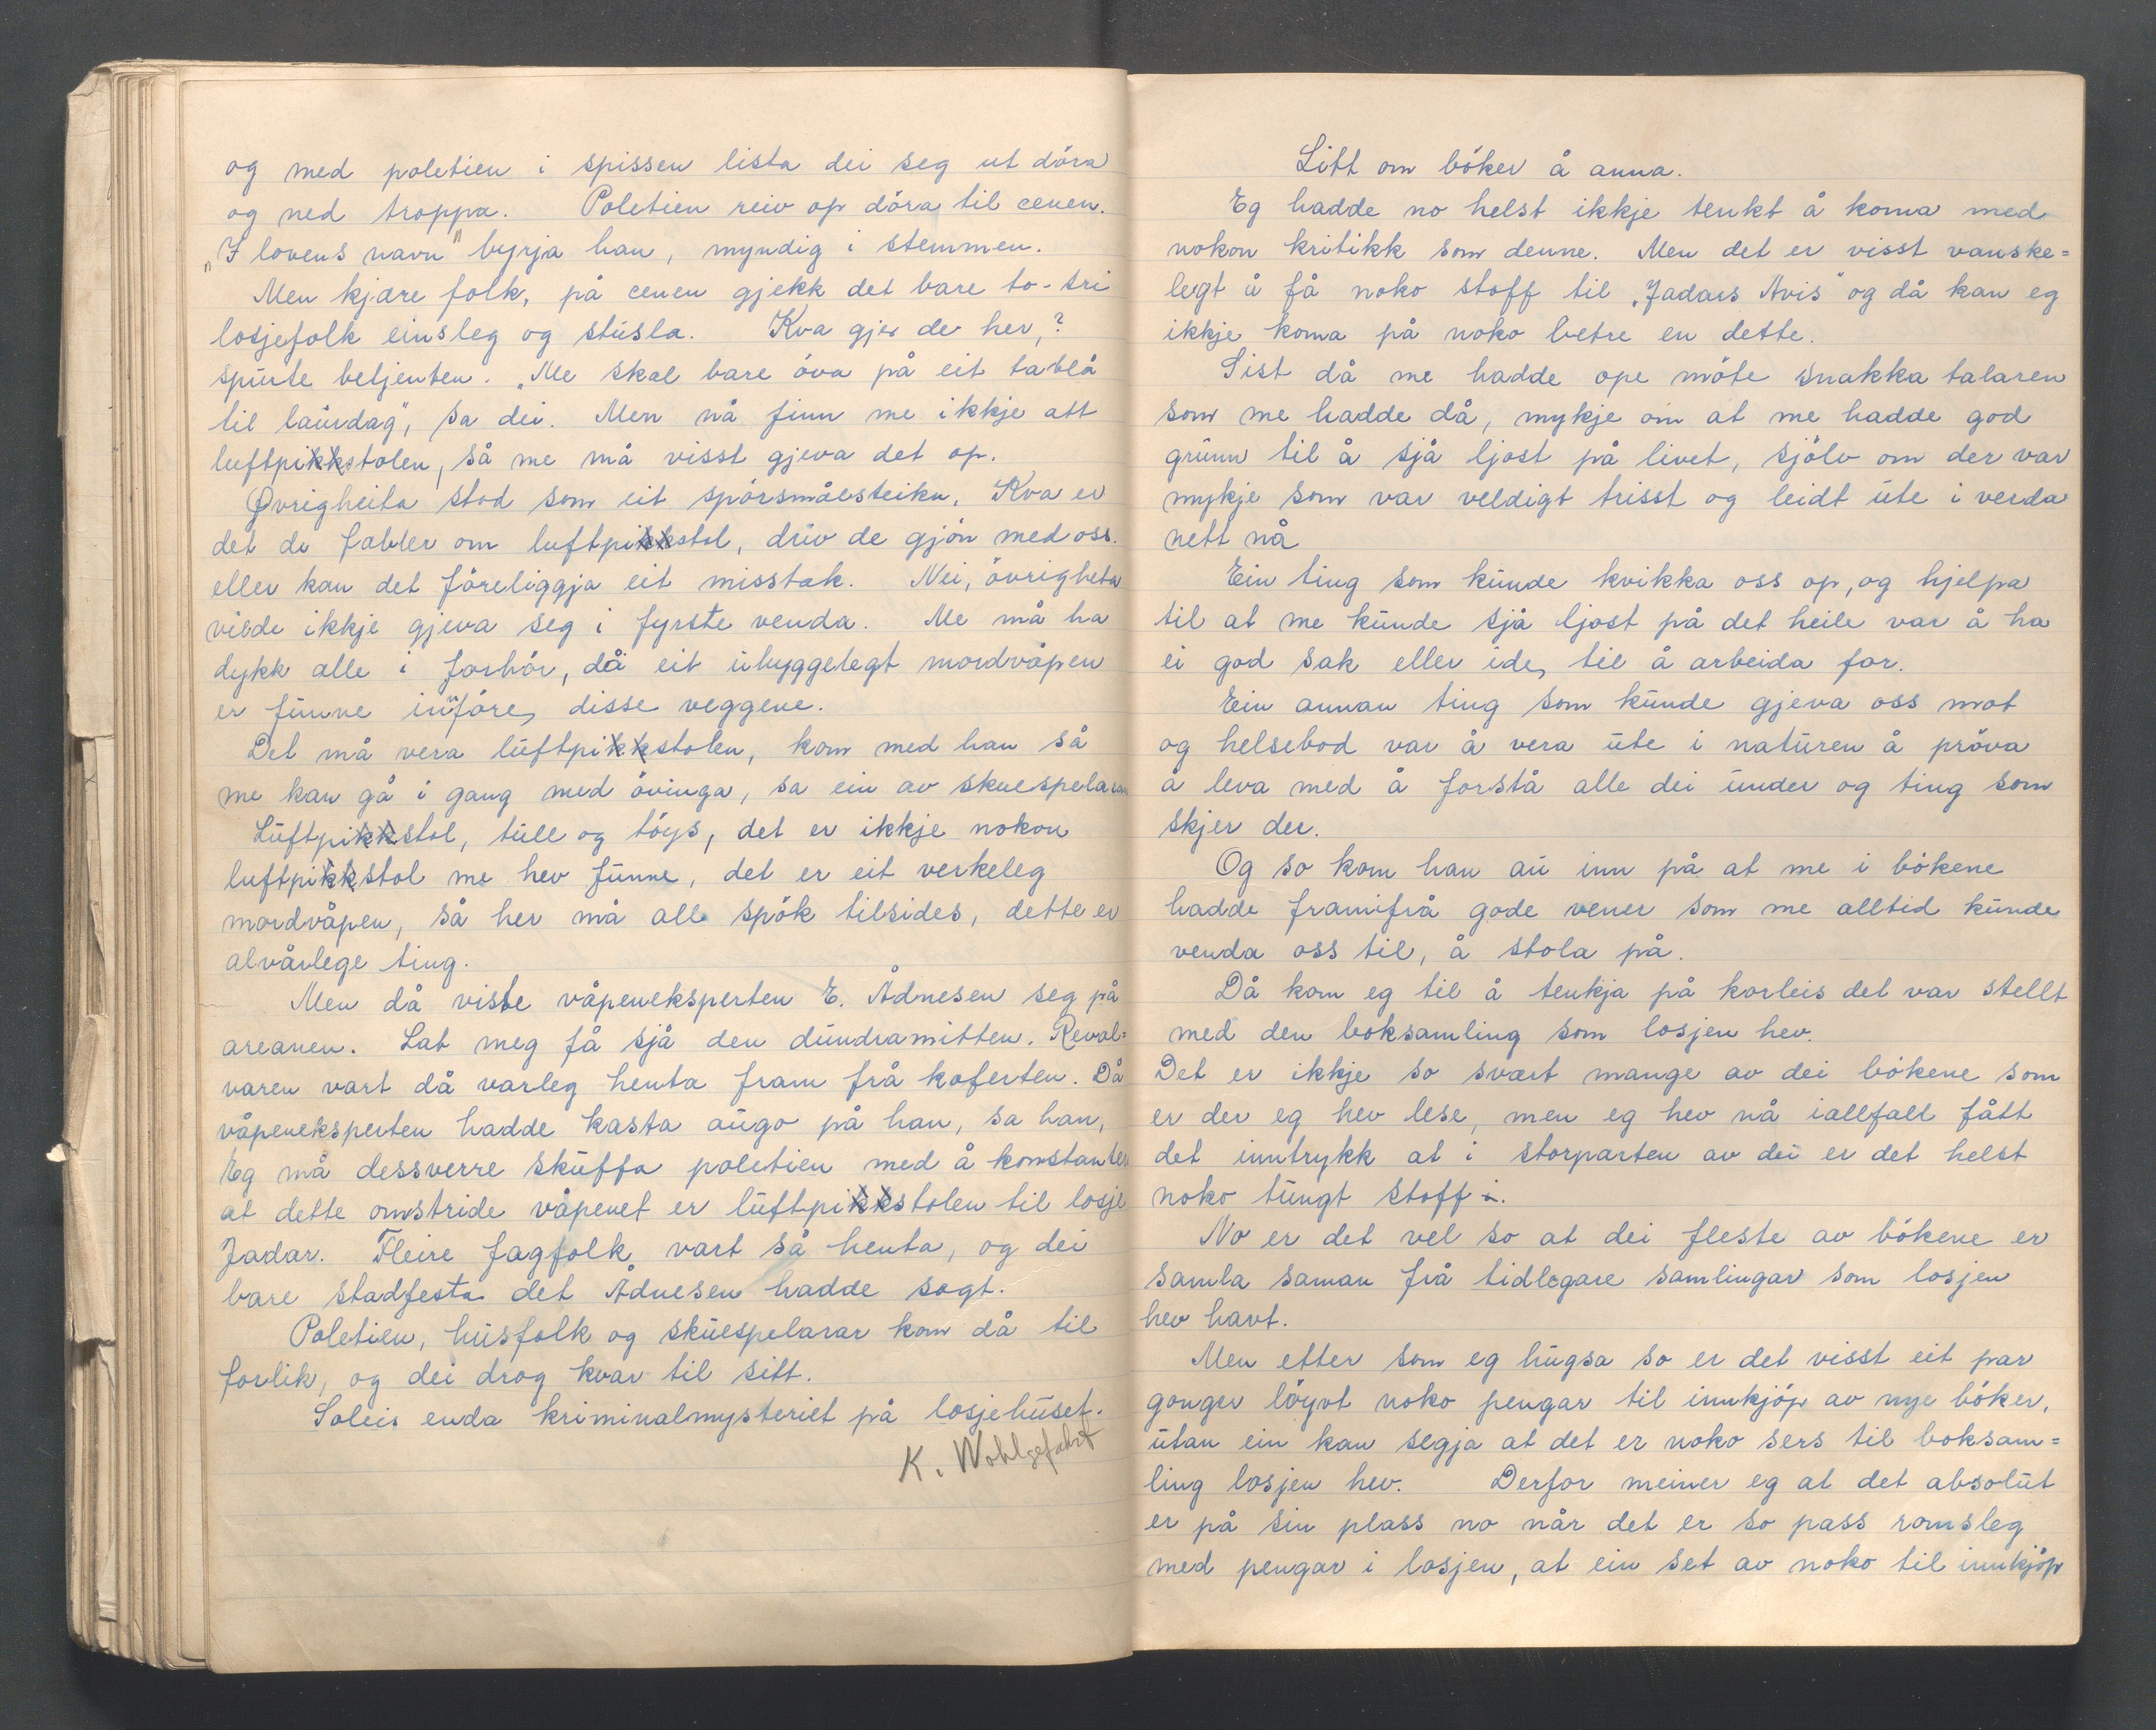 og med poletien i spissen lista dei seg ut döra
og ned troppa. Poletien reiv op döra til cenen.
„I lovens navn" byrja han, myndig i stemmen.
Men kjære folk, på cenen gjekk det bare to-tri
losjefolk einsleg og stusla. Kva gjer de her,?
spurte betjenten. „Me skal bare öva på eit tablå
til laurdag", sa dei. Men nå finn me ikkje att
luftpikkstolen, så me må visst gjeva det op.
Øvrigheita stod som eit spörsmålsteikn. Kva er
det de fabler om luftpikkstol, driv de gjön med oss.
eller kan det föreliggja eit misstak. Nei, övrigheta
vilde ikkje gjeva seg i fyrste venda. Me må ha
dykk alle i forhör, då eit uhyggelegt mordvåpen
er funne innföre disse veggene.
Det må vera luftpikkstolen, kom med han så
me kan gå i gang med övinga, sa ein av skuespelaran
Luftpikkstol, tull og töys, det er ikkje nokon
luftpikkstol me hev funne, det er eit verkeleg
mordvåpen, så her må all spök tilsides, dette er
alvårlege ting.
Men då viste våpeneksperten E. Ådnesen seg på
areanen. Lat meg få sjå den dundramitten. Reval=
varen vart då varleg henta fram frå koferten. Då
våpeneksperten hadde kasta augo på han, sa han,
Eg må dessverre skuffa poletien med å konstanter
at dette omstride våpenet er luftpikkstolen til losje
Jadar. Fleire fagfolk vart så henta, og dei
bare stadfesta det Ådnesen hadde sagt.
Poletien, husfolk og skuespelarar kom då til
forlik, og dei drog kvar til sitt.
Soleis enda kriminalmysteriet på losjehuset.
K. Wohlgefahrt
Litt om böker å anna.
Eg hadde no helst ikkje tenkt å koma med
nokon kritikk som denne. Men det er visst vanske=
legt å få noko stoff til „Jadars Avis" og då kan eg
ikkje koma på noko betre en dette.
Sist då me hadde ope möte snakka talaren
som me hadde då, mykje om at me hadde god
grunn til å sjå ljost på livet, sjölv om der var
mykje som var veldigt trisst og leidt ute i verda
nett nå
Ein ting som kunde kvikka oss op, og hjelpa
til at me kunde sjå ljost på det heile var å ha
ei god sak eller ide, til å arbeida for.
Ein annan ting som kunde gjeva oss mot
og helsebod var å vera ute i naturen å pröva
å leva med å forstå alle dei under og ting som
skjer der.
Og so kom han au inn på at me i bökene
hadde framifrå gode vener som me alltid kunde
venda oss til, å stola på.
Då kom eg til å tenkja på korleis det var stellt
med den boksamling som losjen hev.
Det er ikkje so svært mange av dei bökene som
er der eg hev lese, men eg hev nå iallfall fått
det inntrykk at i storparten av dei er det helst
noko tungt stoff i.
No er det vel so at dei fleste av bökene er
samla saman frå tidlegare samlingar som losjen
hev havt.
Men etter som eg hugsa so er det visst eit par
gonger löyvt noko pengar til innkjöp av nye böker,
utan ein kan segja at det er noko sers til boksam=
ling losjen hev. Derfor meiner eg at det absolut
er på sin plass no når det er so pass romsleg
med pengar i losjen, at ein set av noko til innkjöp